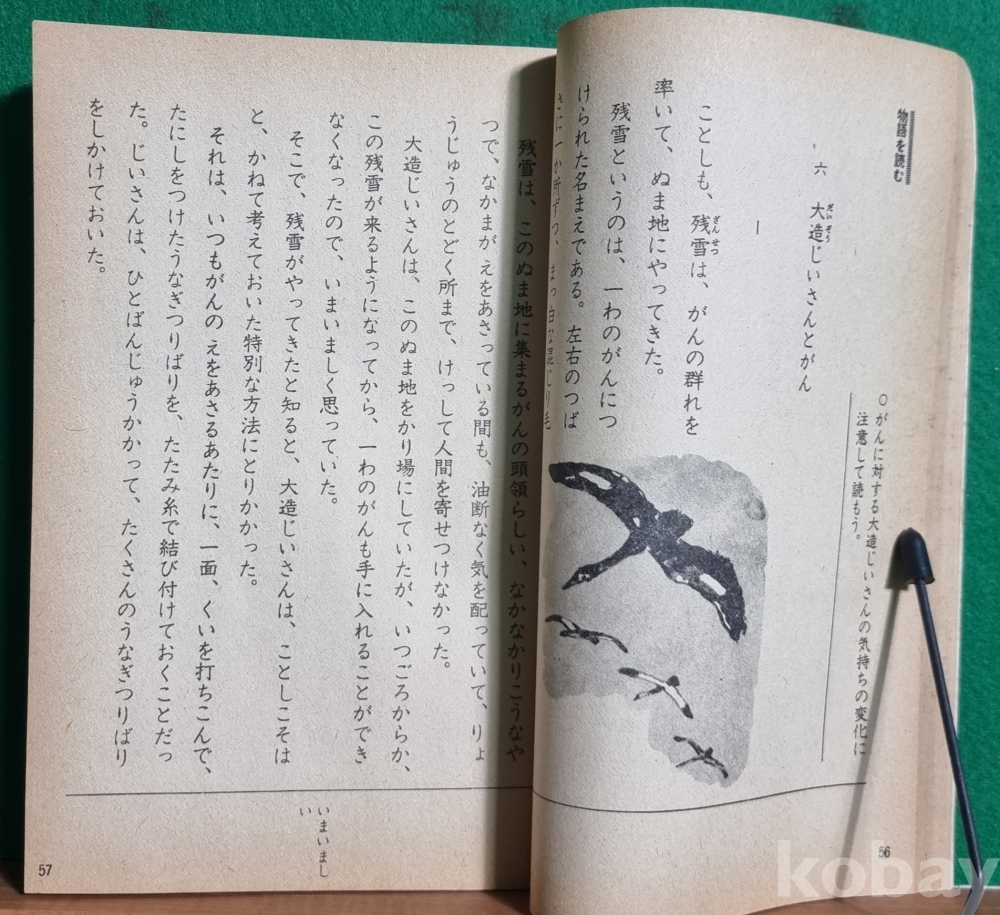 物語を読む
六 大造じいさんとがん
だいぞう
○がんに対する大造じいさんの気持ちの変化に
注意して読もう。
一
ことしも、残雪は、がんの群れを
ざんせつ
率いて、ぬま地にやってきた。
残雪というのは、一わのがんにつ
けられた名まえである。左右のつば
さに一か所ずつ、まっ白な混じり毛
56
残雪は、このぬま地に集まるがんの頭領らしい、なかなかりこうなや
つで、なかまがえをあさっている間も、油断なく気を配っていて、りょ
うじゅうのとどく所まで、けっして人間を寄せつけなかった。
大造じいさんは、このぬま地をかり場にしていたが、いつごろからか、
この残雪が来るようになってから、一わのがんも手に入れることができ
なくなったので、いまいましく思っていた。
そこで、残雪がやってきたと知ると、大造じいさんは、ことしこそは
と、かねて考えておいた特別な方法にとりかかった。
それは、いつもがんのえをあさるあたりに、一面、くいを打ちこんで、
たにしをつけたうなぎつりばりを、たたみ糸で結び付けておくことだっ
た。じいさんは、ひとばんじゅうかかって、たくさんのうなぎつりばり
をしかけておいた。
いまいまし
い
57
kobay